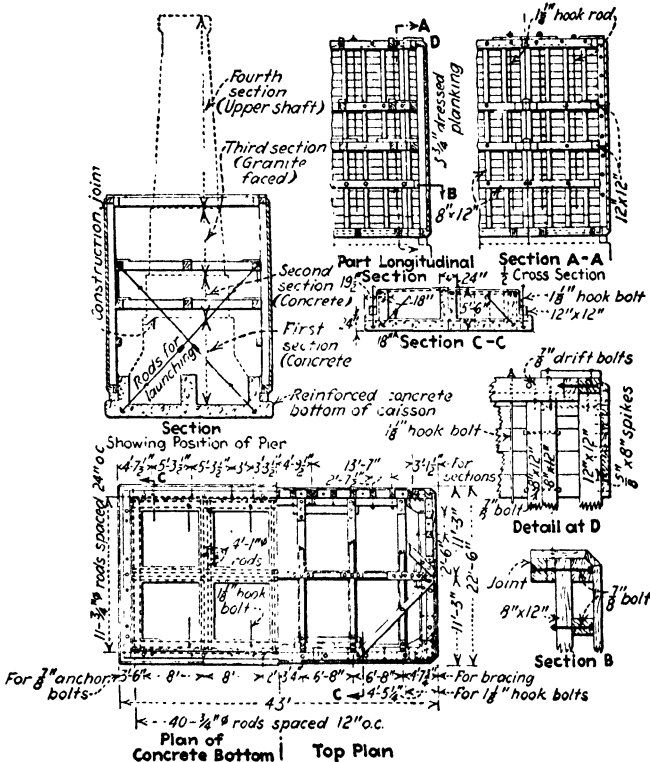 Fourth
section
(Upper shaft)
Third section
(Granite
faced)
Construction joint
Second
section
(Concrete)
First
section
(Concrete
Rods for
launching
Reinforced concrete
bottom of caisson
Section
Showing Position of Pier
A
D
3¼" dressed
planking
B
8"x12"
Part Longitudinal
Section
1⅛" hook rod
12"x12"
Section A-A
½ Cross Section
19½"
24"
24"
18"
18"
5'-6"
1⅛" hook bolt
12"x12"
Section C-C
⅞" drift bolts
1⅛" hook bolt
8"x12"
8"x12"
12"x12"
⅝"x8" spikes
⅞" bolt
Detail at D
Joint
8"x12"
⅞" bolt
Section B
4'-7½"
5'-3½"
5'-3½"
3'-3½"
4'-9½"
13'-7"
3'-1½"
For
sections
C
11-¾"ø rods spaced 24"o.c.
4'-1"ø
rods
1⅛" hook
bolt
2'-6"
11'-3"
11'-3"
22'-6"
For ⅞" anchor
bolts
3'-6"
8'
8'
3'4"
6'-8"
6'-8"
For bracing
C
4'-5¼"
For 1⅛" hook bolts
43'
40-¾"ø rods spaced 12"o.c.
Plan of
Concrete Bottom
Top Plan